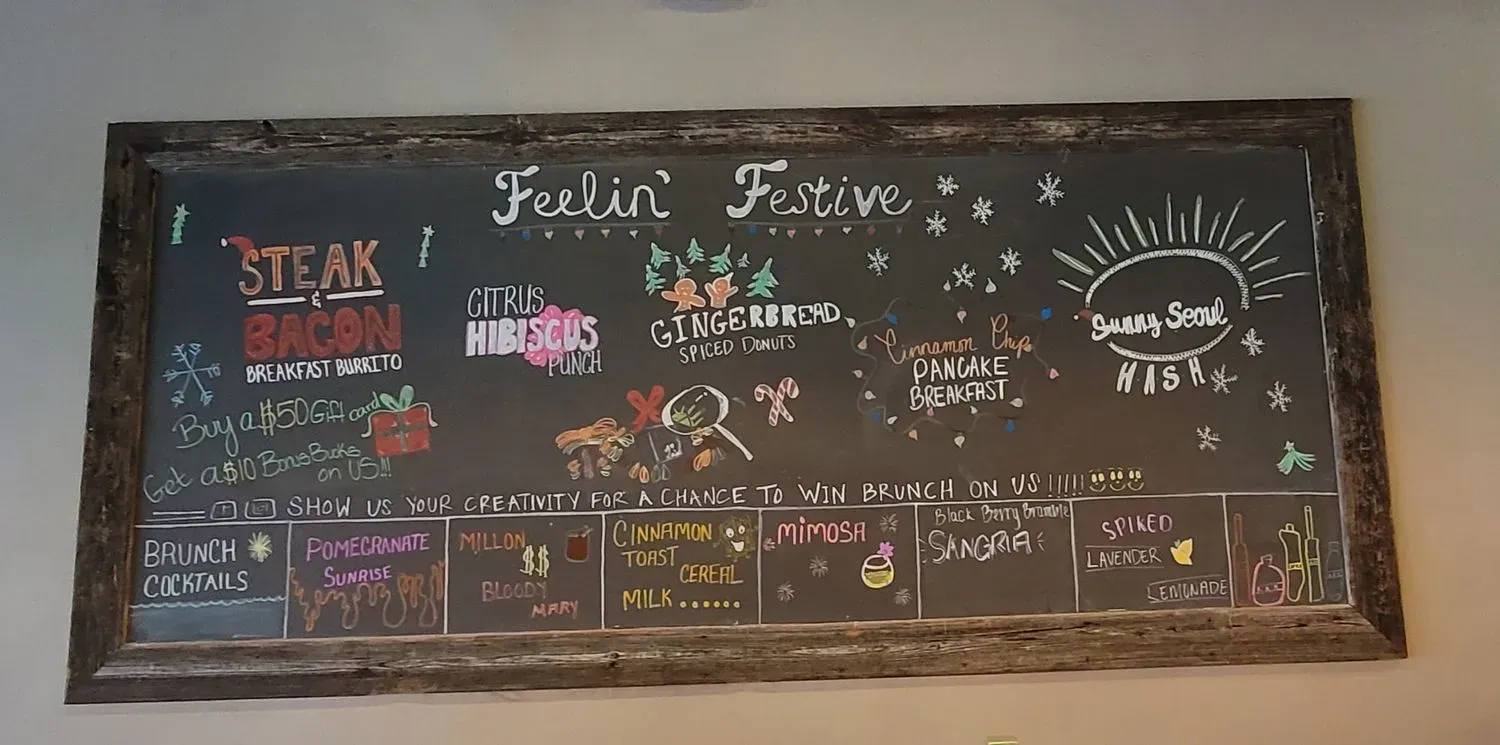 Feelin' Festive
STEAK
&
BACON
BREAKFAST BURRITO
CITRUS
HIBISCUS
PUNCH
GINGERBREAD
SPICED DONUTS
Cinnamon Chip
PANCAKE
BREAKFAST
Sunny Seoul
HASH
Buy a $50 Gift card
Get a $10 Bonus Bucks
on US!!!
SHOW US YOUR CREATIVITY FOR A CHANCE TO WIN BRUNCH ON US !!!!!
BRUNCH
COCKTAILS
POMEGRANATE
SUNRISE
MILLON
$$
BLOODY
MARY
CINNAMON
TOAST
CEREAL
MILK ......
MIMOSA
Black Berry Bramble
SANGRIA
SPIKED
LAVENDER
LEMONADE